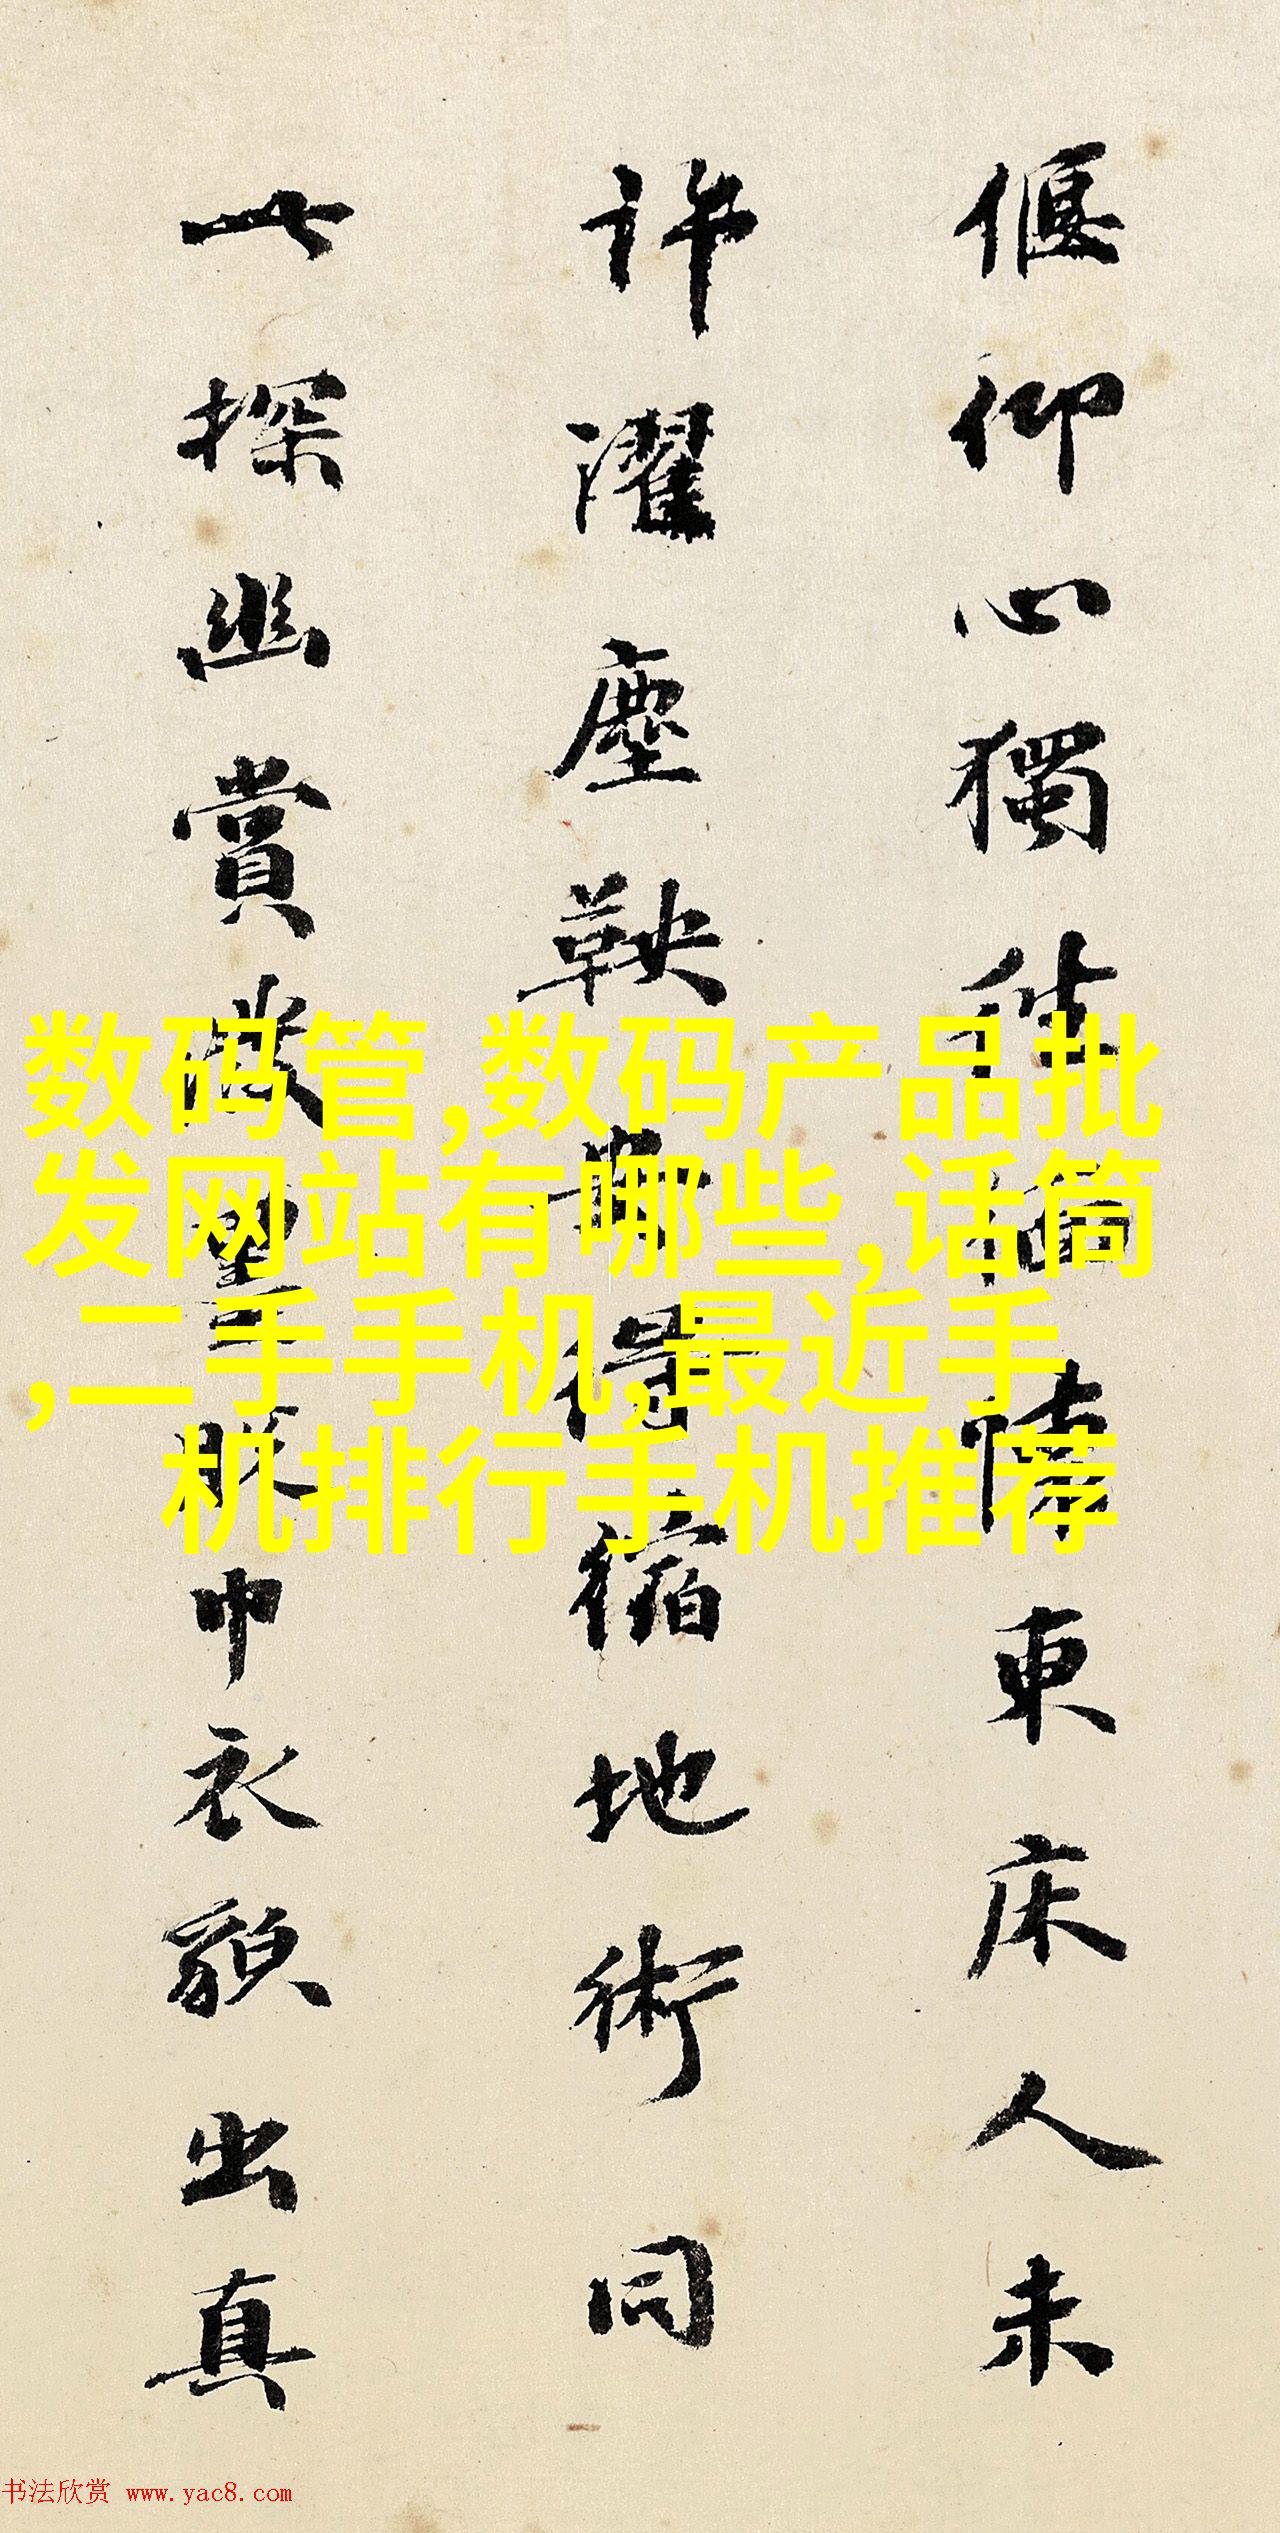 偃仰心獨往東床人未
許濯塵鞅安得縮地術同
此探幽賞潑墨脫巾衣貌出真
数码管,数码产品批
发网站有哪些,话筒
,二手手机,最近手
机排行手机推荐
书法欣赏 www.yac8.com